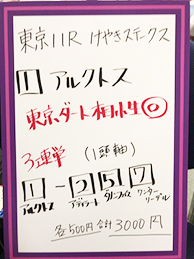 東京11R けやきステークス
1 アルクトス
東京ダート相性◎
3連単 (1頭軸)
1-2 5 1 7
アルクトス アディラート ダノンフェイス ワンダーリーデル
各500円合計3000円